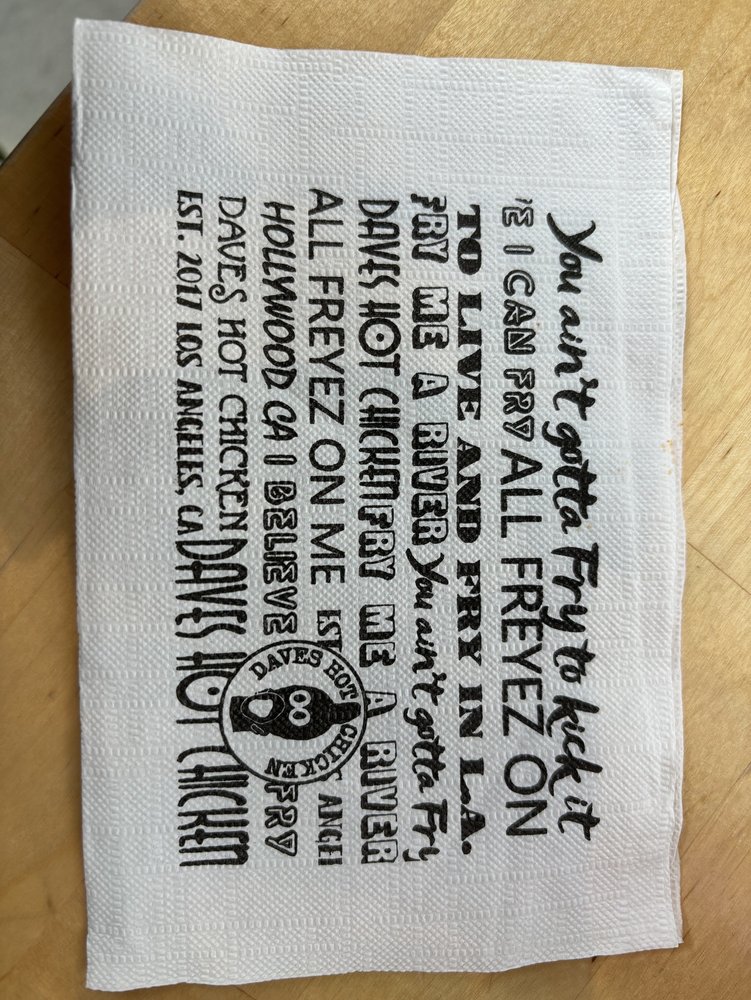 You ain't gotta Fry to kick it
E I CAN FRY ALL FREYEZ ON
TO LIVE AND FRY IN L.A.
FRY ME A RIVER You ain't gotta Fry
DAVES HOT CHICKEN FRY ME A RIVER
ALL FREYEZ ON ME EST ANGEL
HOLLYWOOD CA I BELIEVE FRY
DAVES HOT CHICKEN DAVES HOT CHICKEN
EST. 2017 LOS ANGELES, CA
DAVES HOT CHICKEN